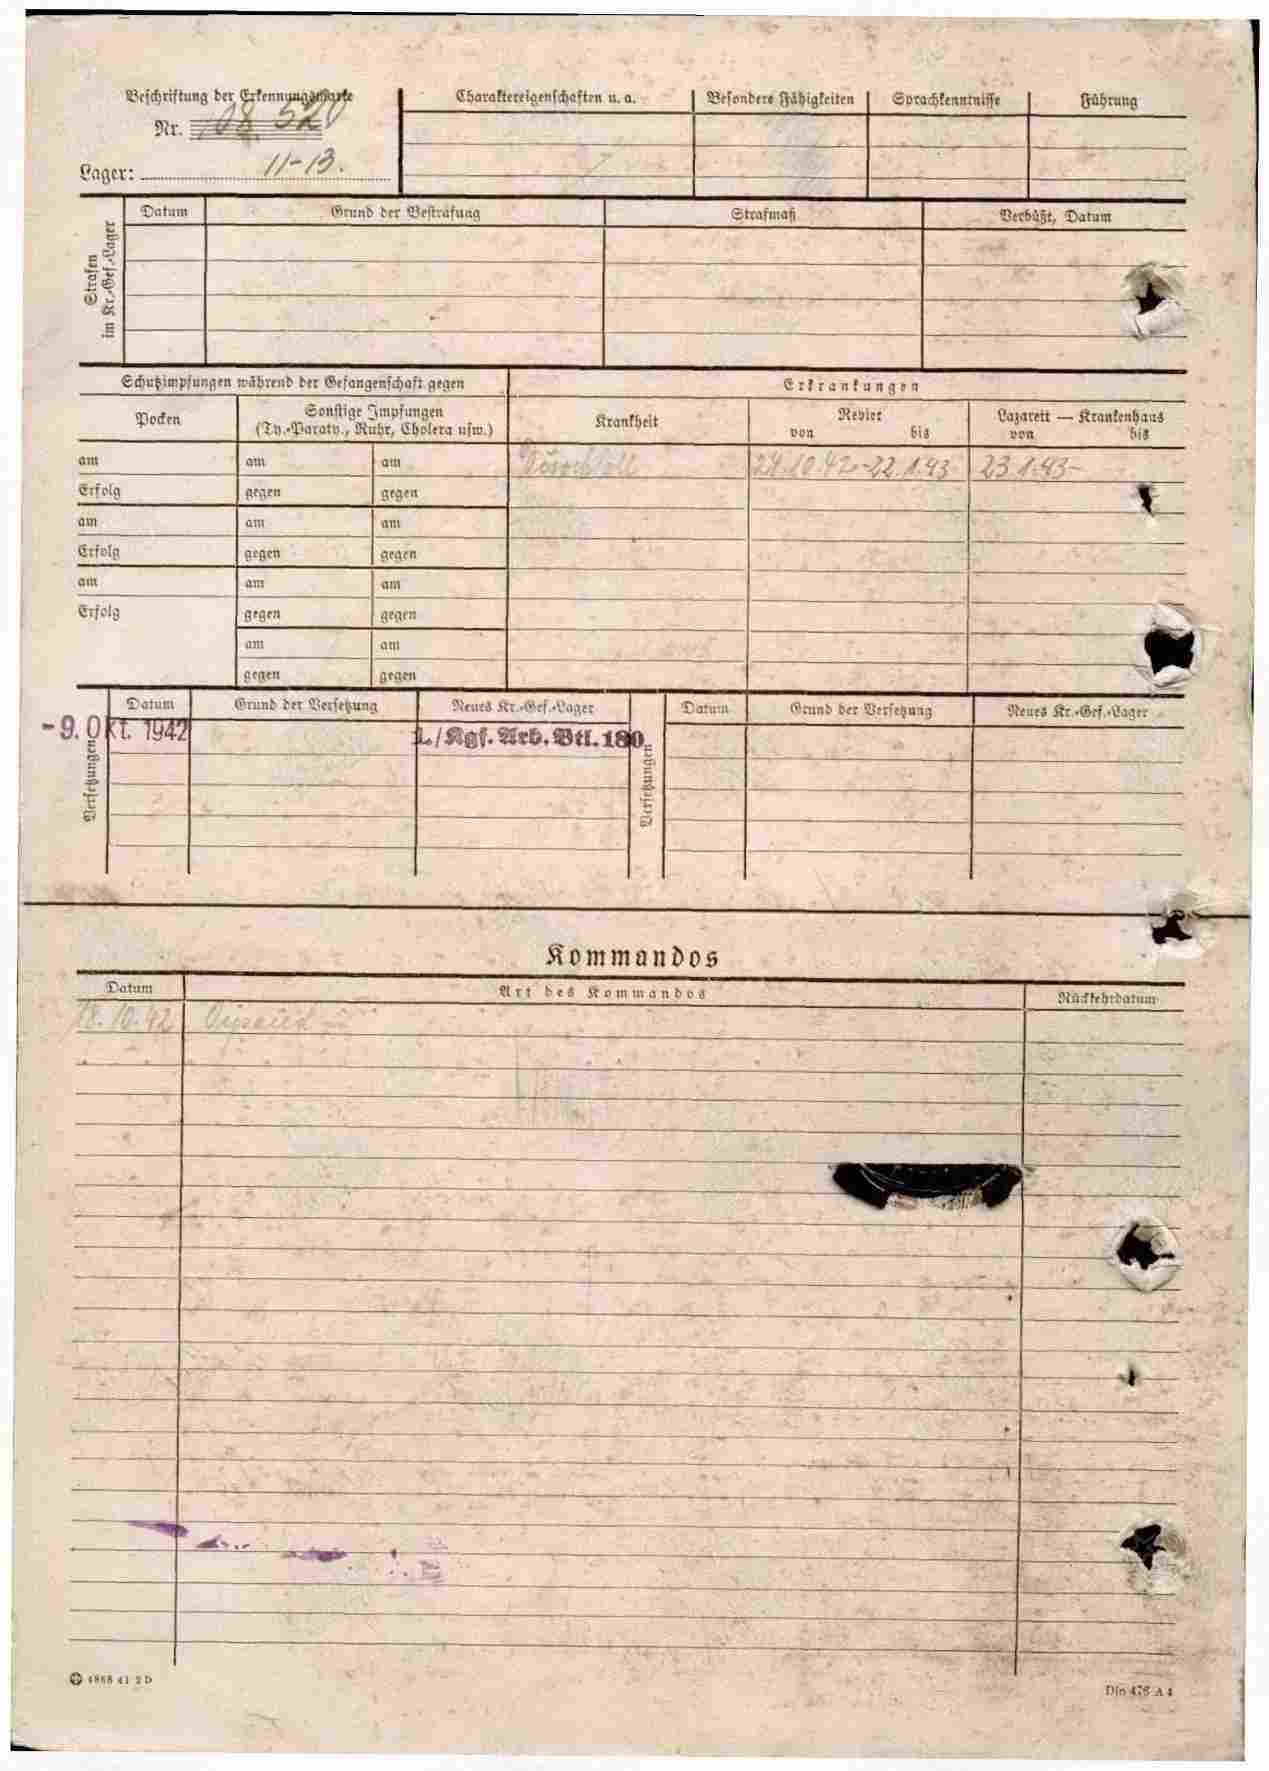 Beschriftung der Erkennungsmarke
Nr. 108 520
Lager: 11-13.
Charaktereigenschaften u. a.
Besondere Fähigkeiten
Sprachkenntnisse
Führung
Strafen im Kr.-Gef.-Lager
Datum
Grund der Bestrafung
Strafmaß
Verbüßt, Datum
Schutzimpfungen während der Gefangenschaft gegen
Erkrankungen
Pocken
Sonstige Impfungen
(Ty.-Paraty., Ruhr, Cholera usw.)
Krankheit
Revier
von bis
Lazarett — Krankenhaus
von bis
am am am
24.10.42-22.1.43 23.1.43-
Erfolg gegen gegen
am am am
Erfolg gegen gegen
am am am
Erfolg gegen gegen
am am
gegen gegen
Versetzungen
Datum
Grund der Versetzung
Neues Kr.-Gef.-Lager
-9. Okt. 1942
1./Kgf. Arb. Btl. 180
Versetzungen
Datum
Grund der Versetzung
Neues Kr.-Gef.-Lager
Kommandos
Datum
Art des Kommandos
Rückkehrdatum
18.10.42
4868 41 2 D
Din 476 A 4